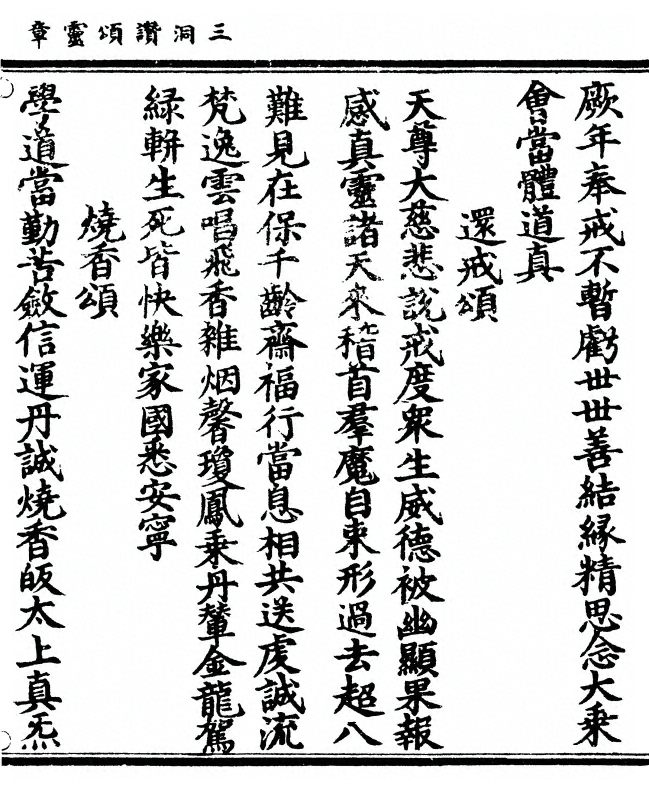 三洞讚頌靈章
厥年奉戒不暫虧世世善結縁精思念大乗
會當體道真
還戒頌
天尊大慈悲說戒度衆生威德被幽顯果報
感真靈諸天來稽首羣魔自束形過去超八
難見在保千齡齋福行當息相共送虔誠流
梵逸雲唱飛香雜烟馨瓊鳳乗丹輦金龍駕
緑軿生死皆快樂家國悉安寧
燒香頌
學道當勤苦斂信運丹誠燒香皈太上真炁